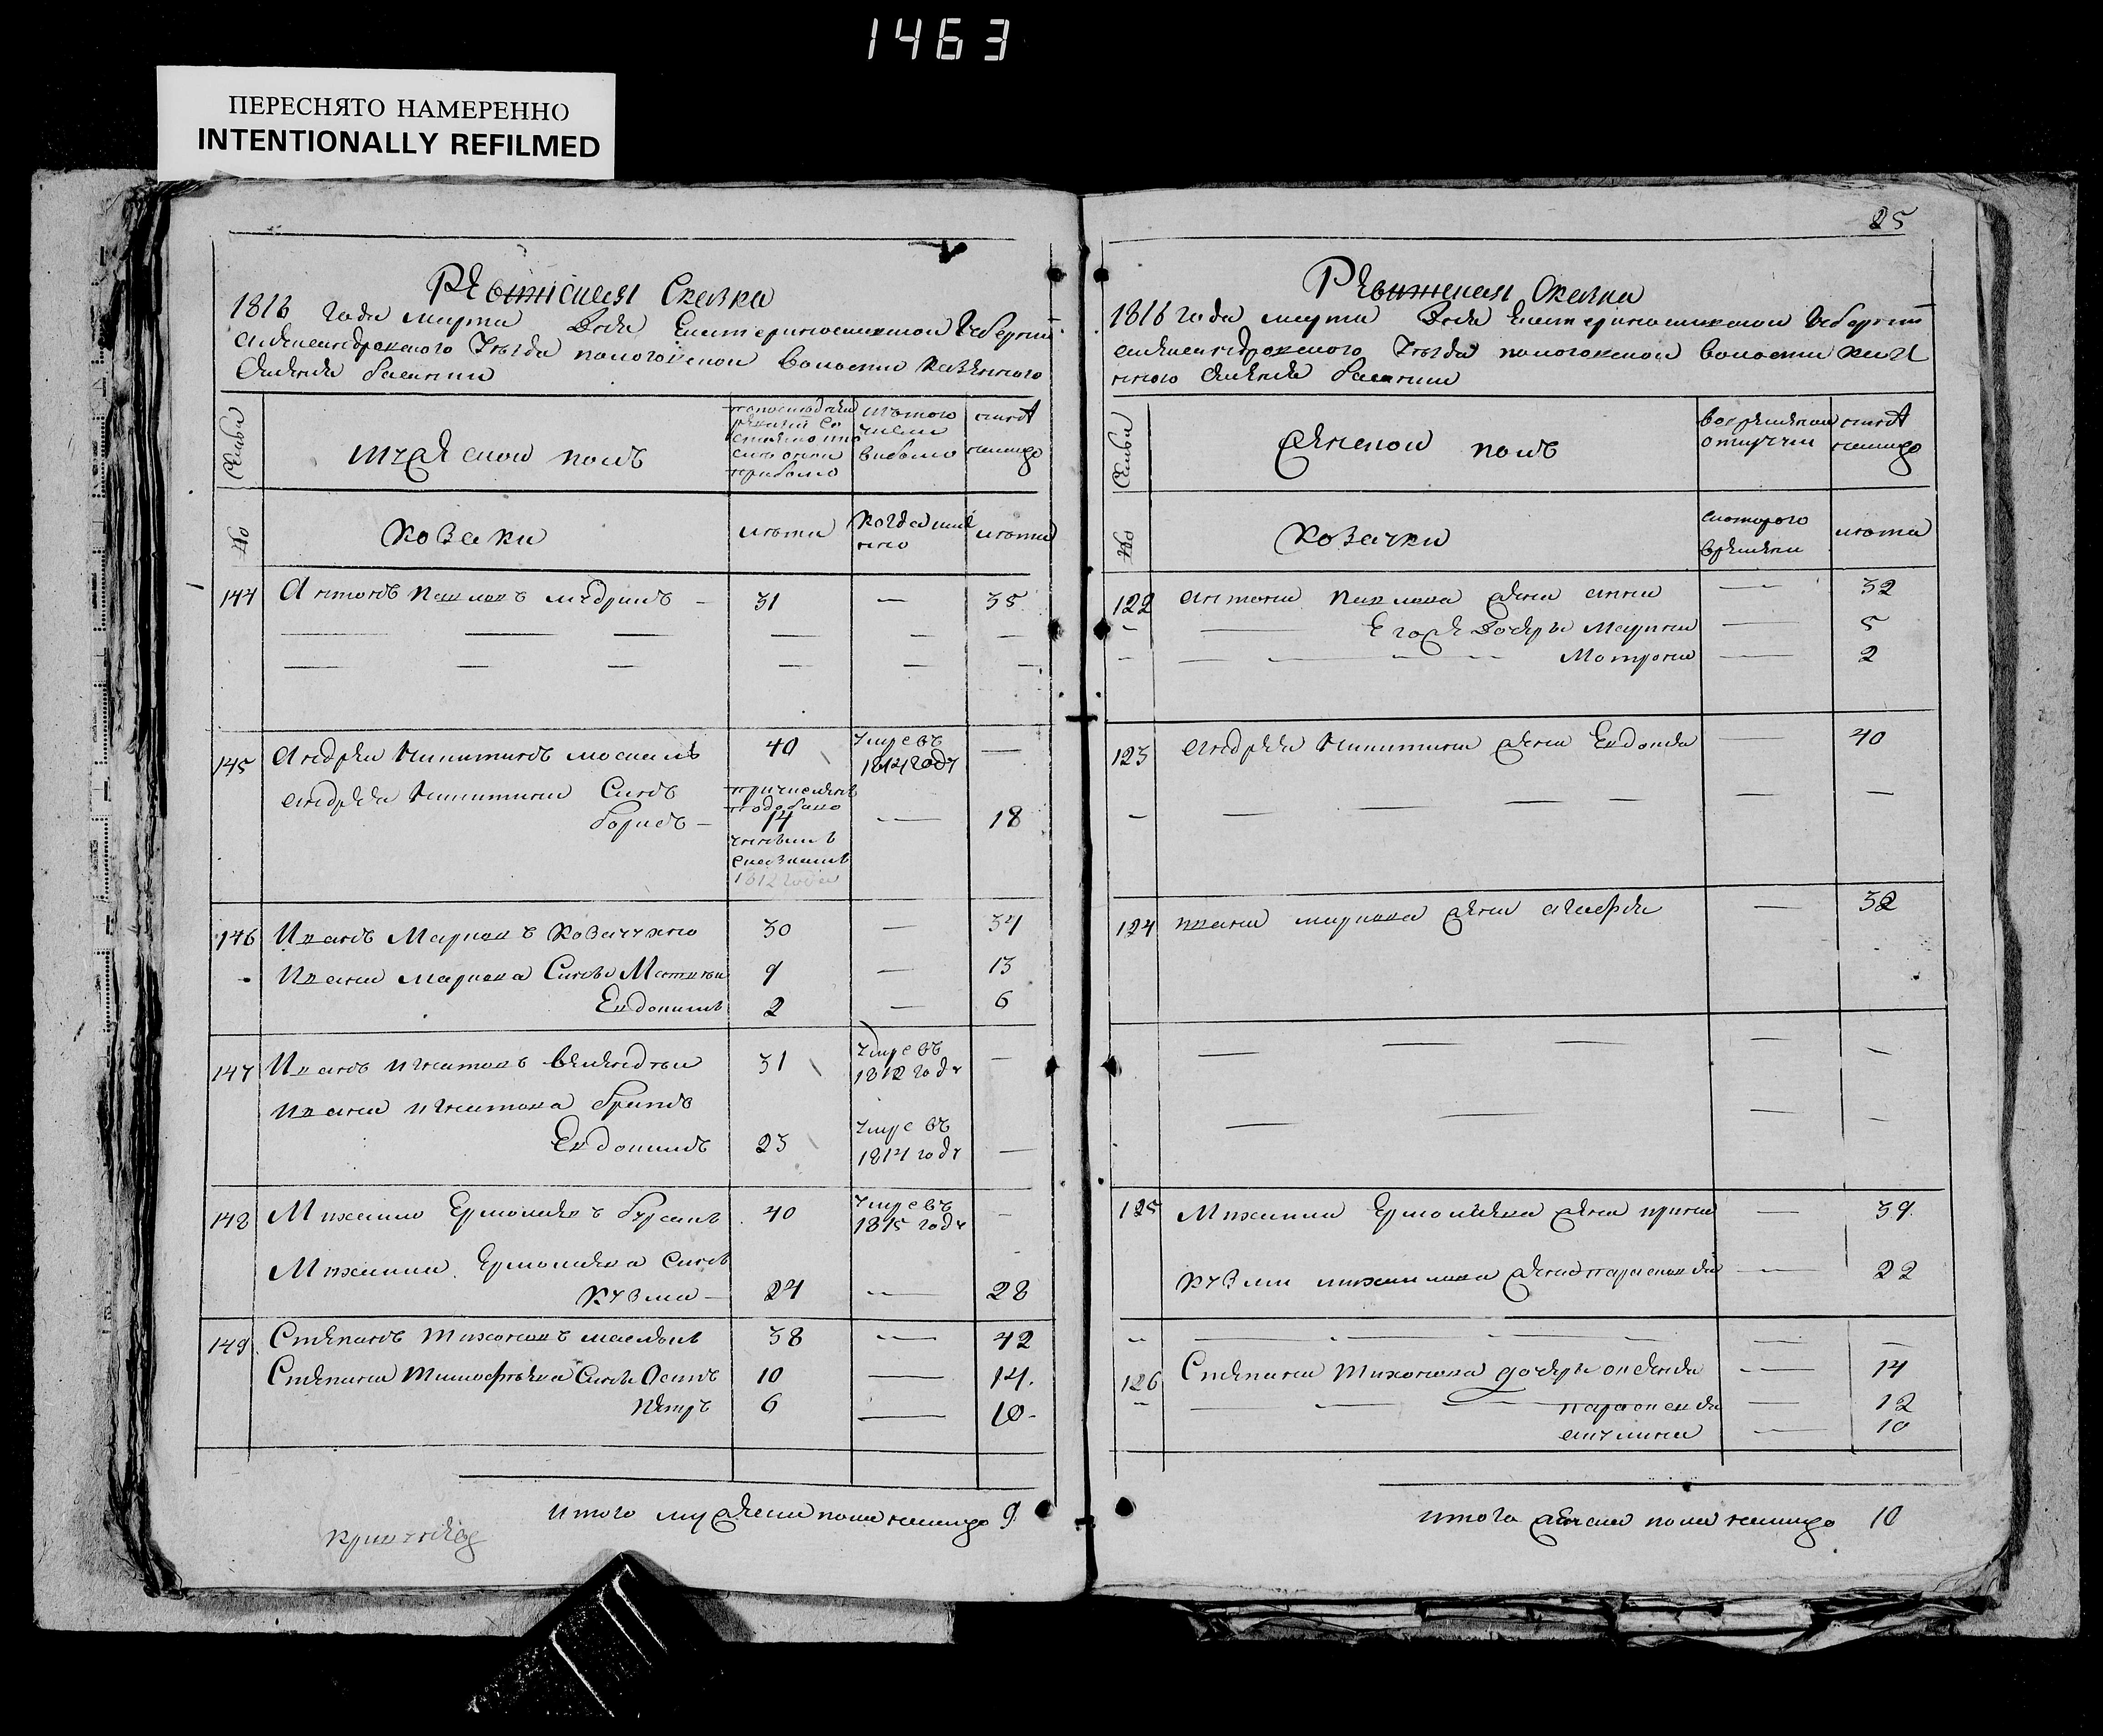 1463
ПЕРЕСНЯТО НАМЕРЕННО
INTENTIONALLY REFILMED
Ревизская Сказка
1816 года марта Дня Екатеринославской Губернии
Александровского уезда пологовской волости казенного
селения басани
Семьи
мужеской полъ
по последней
ревизии со
стояло и по
сле оной
прибыло
изъ того
числа
выбыло
ныне
налицо
№
козаки
лета
когда имен
но
лета
144 Антонъ павловъ мудрикъ 31 — 35
145 Андрей никитинъ москаль 40 умре въ —
1814 году
андрея никитина Сынъ
борисъ — 14 — 18
1812 года
146 Иванъ Марковъ козаченко 30 — 34
Ивана Маркова Сыны Матвей 9 — 13
Евдокимъ 2 — 6
147 Иванъ игнатовъ 31 умре въ —
1812 году
ивана игнатова братъ
Евдокимъ 23 умре въ —
1814 году
148 Михайло Ермолаевъ бурсакъ 40 умре въ —
1815 году
Михайла Ермолаева Сынъ
кузма — 24 — 28
149 Степанъ Тихоновъ 38 — 42
Степана Тимофеева Сыны Осипъ 10 — 14.
петръ 6 — 10
итого мужеска пола налицо 9
25
Ревизская Сказка
1816 года марта Дня Екатеринославской Губернии
александровского уезда пологовской волости казе
нного селения басани
Семьи
женской полъ
во временной
отлучки
ныне
налицо
№
козачки
с которого
времени
лета
122 антона павлова жена анна — 32
Его же Дочери Марина — 5
Мотрона — 2
123 андрея никитина жена Евдокия — 40
124 ивана маркова жена агафия — 32
125 Михайла Ермолаева жена ирина — 39
кузми михайлова жена параскевия — 22
126 Степана Тихонова дочери — 14
параскевия — 12
акулина — 10
итого женска пола налицо 10